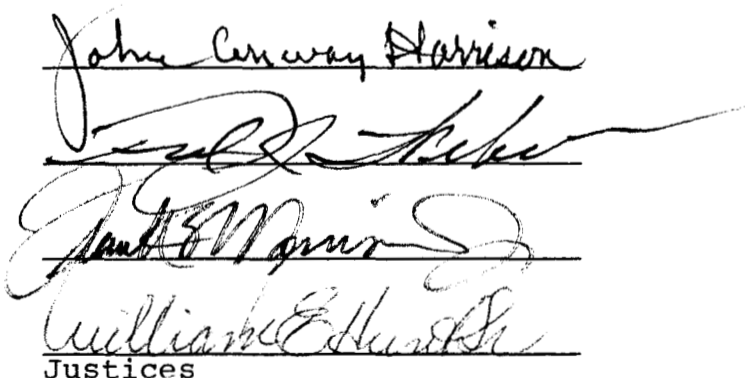 John Conway Harrison
Fred J. Weber
Frank B. Morrison Jr.
William E. Hunt Sr.
Justices